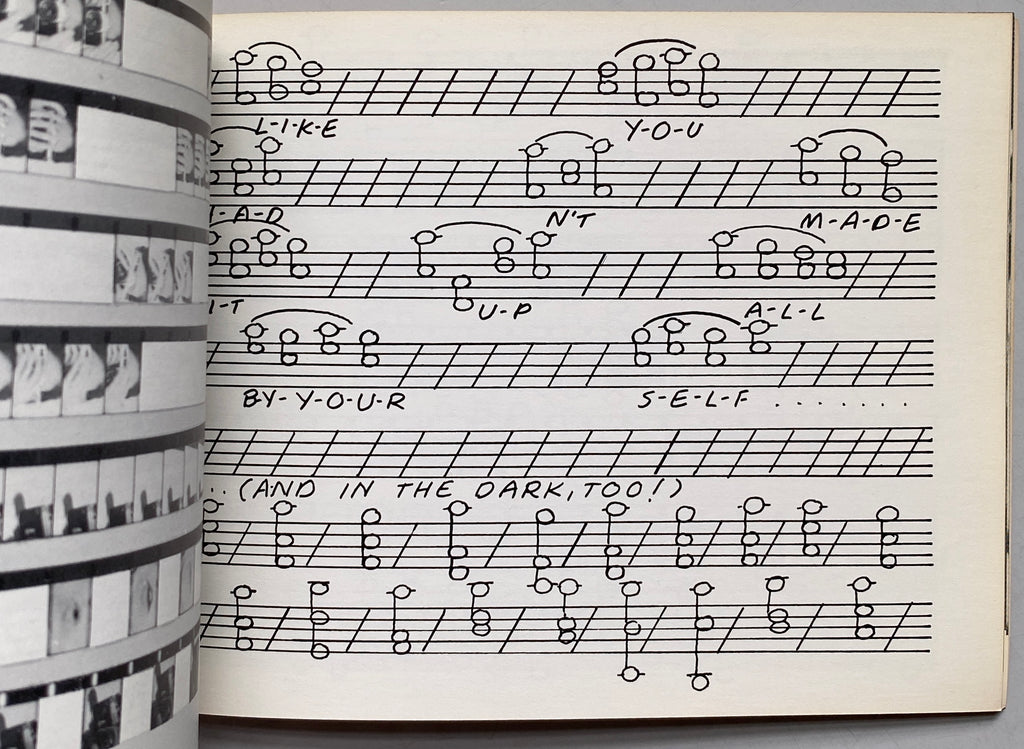 L-I-K-E Y-O-U
H-A-D N'T M-A-D-E
I-T U-P A-L-L
BY-Y-O-U-R S-E-L-F .......
..(AND IN THE DARK, TOO!)